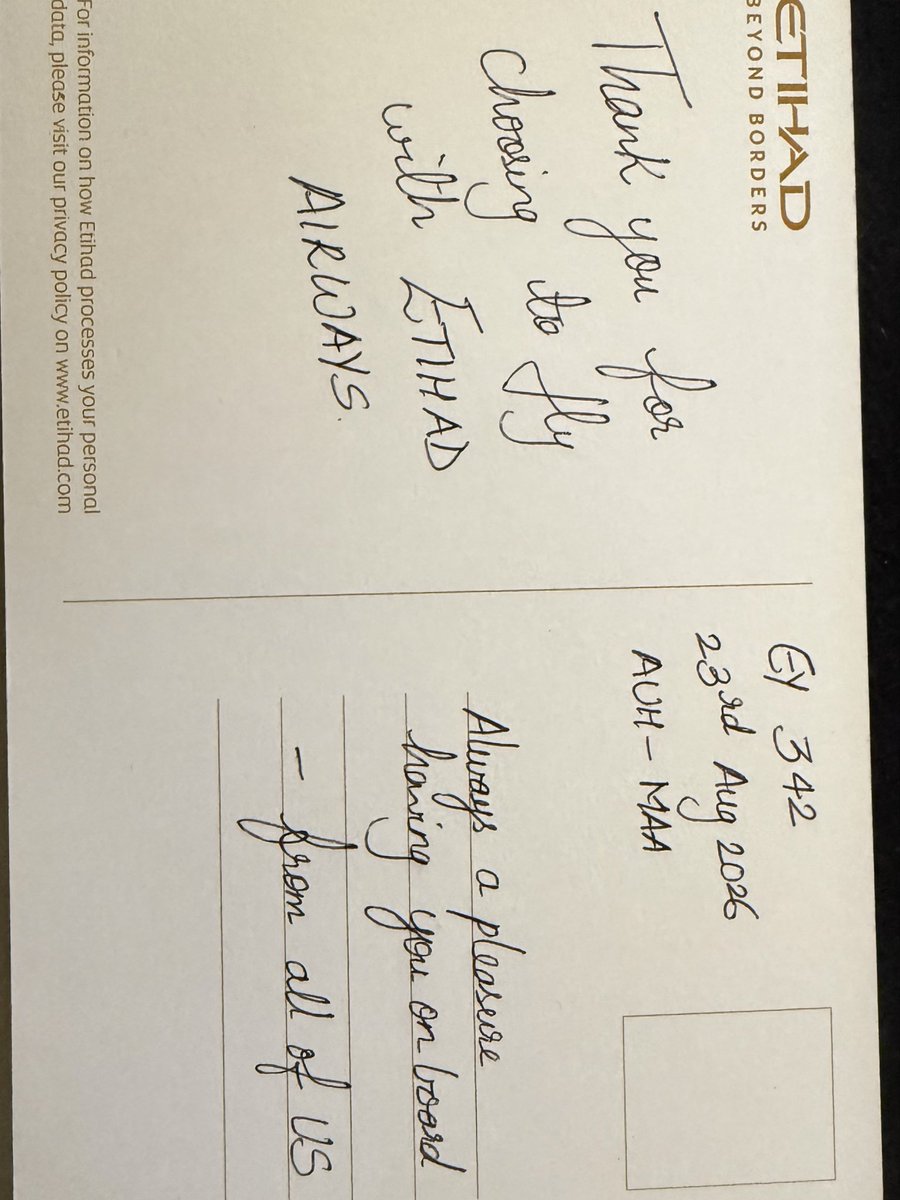 ETIHAD
BEYOND BORDERS
Thank you for
choosing to fly
with ETIHAD
AIRWAYS.
For information on how Etihad processes your personal
data, please visit our privacy policy on www.etihad.com
EY 342
23rd Aug 2026
AUH - MAA
Always a pleasure
having you on board
- from all of US